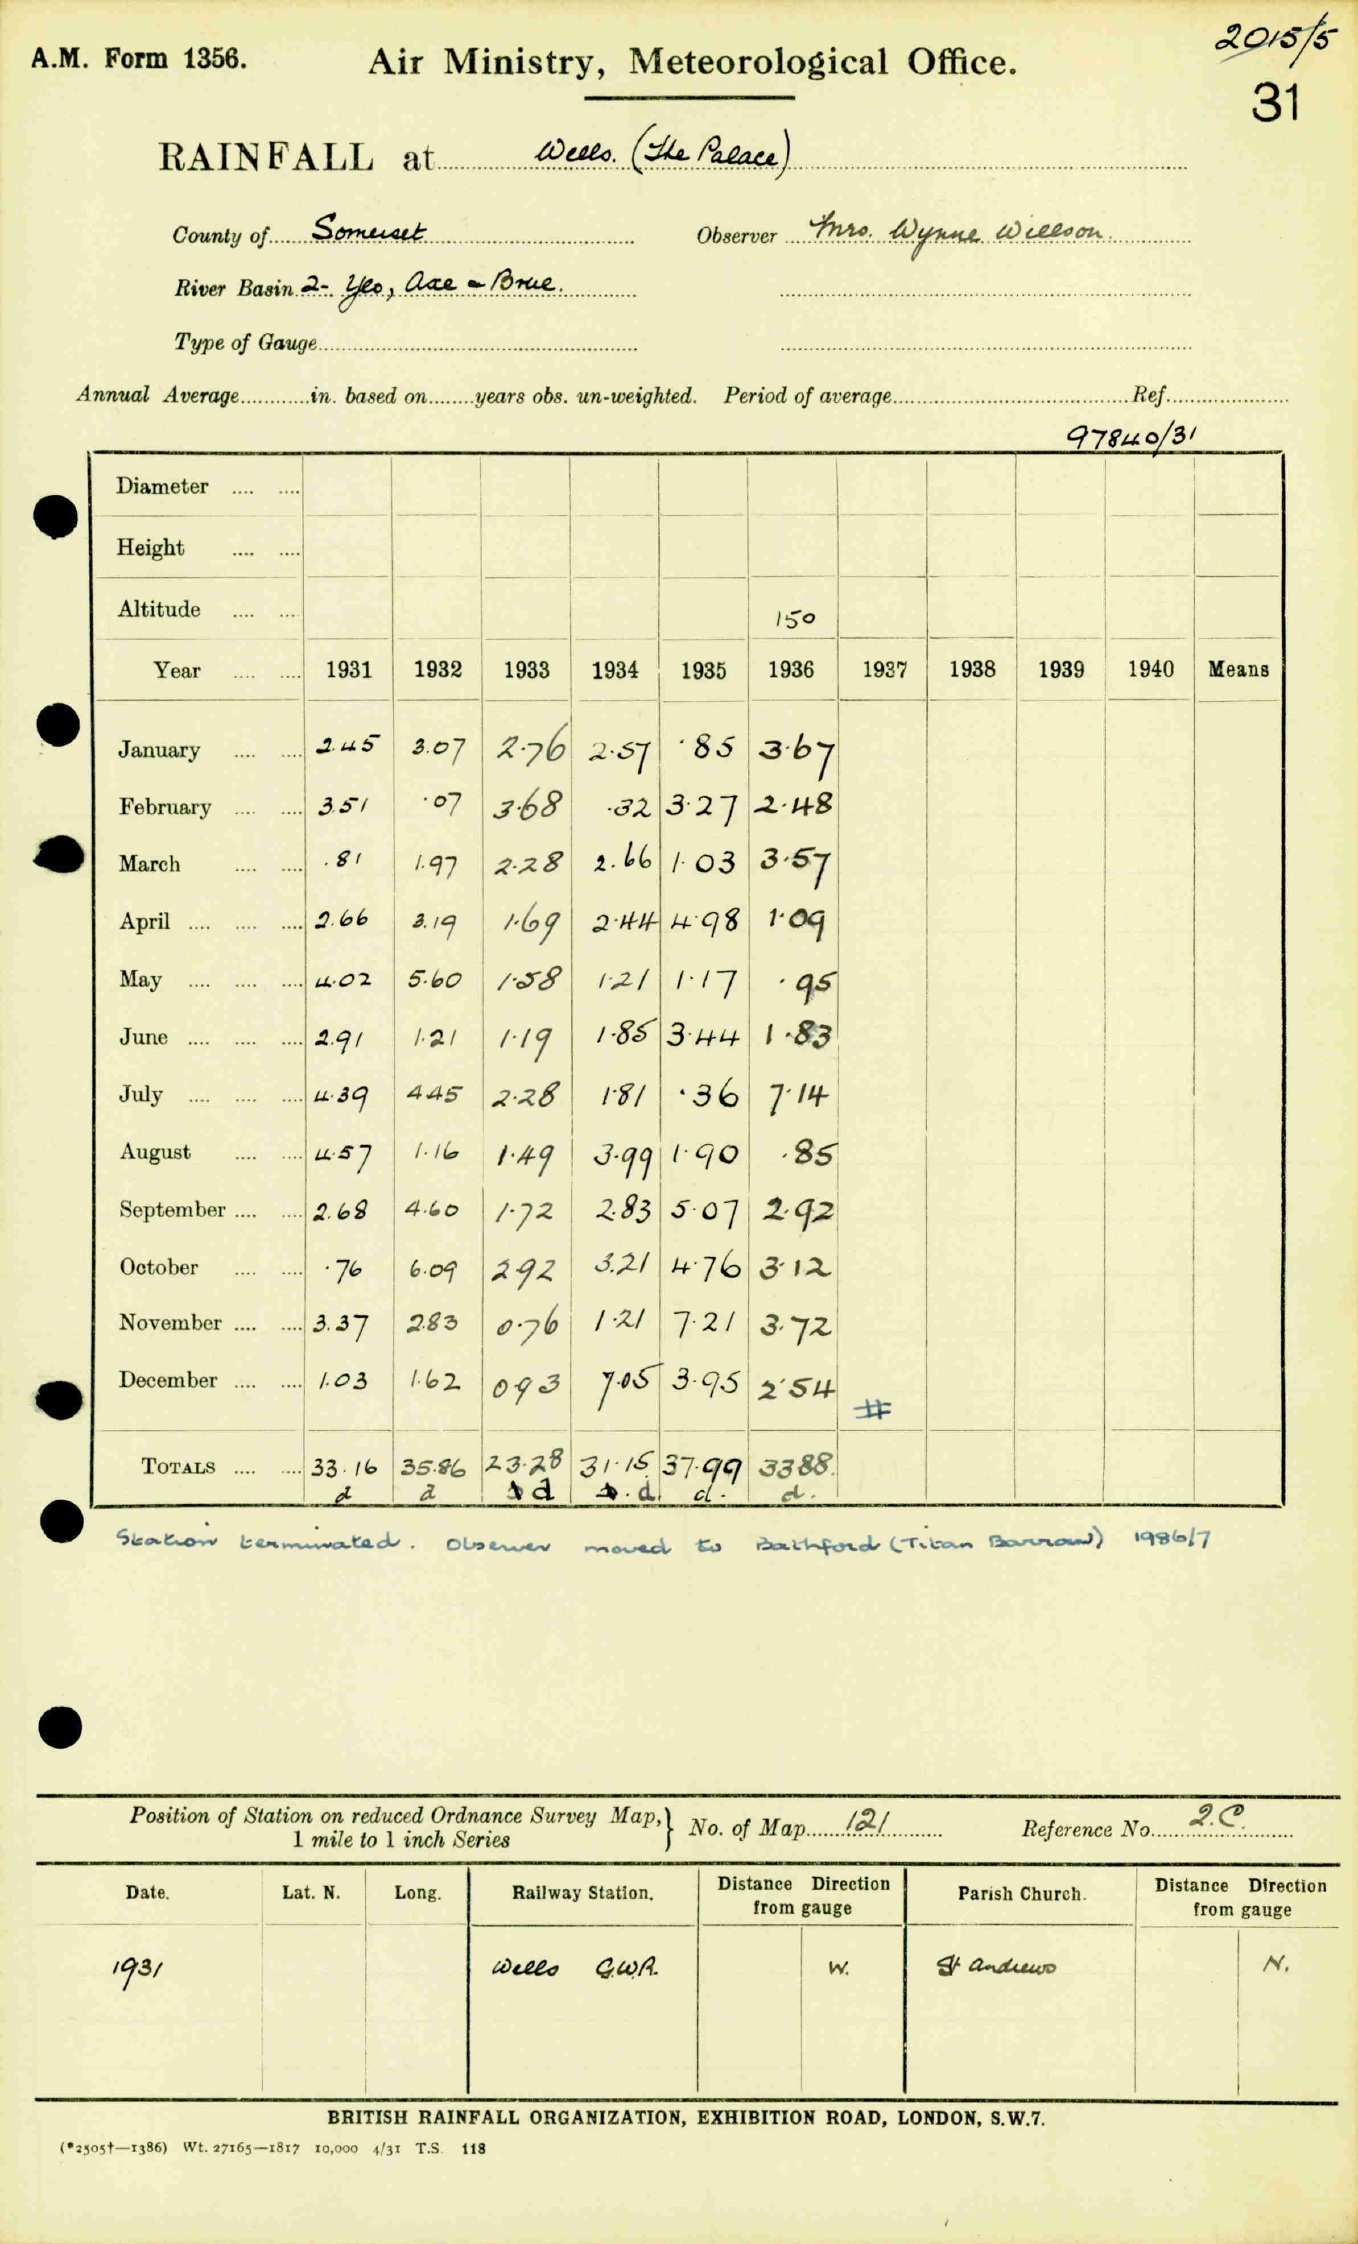 2015/5
A.M. Form 1356. Air Ministry, Meteorological Office.
31
RAINFALL at Wells. (The Palace)
County of Somerset Observer Mrs. Wynne Willson.
River Basin 2- Yeo, Axe & Brue.
Type of Gauge
Annual Average in. based on years obs. un-weighted. Period of average Ref.
97840/31
Diameter
Height
Altitude 150
Year 1931 1932 1933 1934 1935 1936 1937 1938 1939 1940 Means
January 2.45 3.07 2.76 2.57 .85 3.67
February 3.51 .07 3.68 .32 3.27 2.48
March .81 1.97 2.28 2.66 1.03 3.57
April 2.66 3.19 1.69 2.44 4.98 1.09
May 4.02 5.60 1.58 1.21 1.17 .95
June 2.91 1.21 1.19 1.85 3.44 1.83
July 4.39 4.45 2.28 1.81 .36 7.14
August 4.57 1.16 1.49 3.99 1.90 .85
September 2.68 4.60 1.72 2.83 5.07 2.92
October .76 6.09 2.92 3.21 4.76 3.12
November 3.37 2.83 0.76 1.21 7.21 3.72
December 1.03 1.62 0.93 7.05 3.95 2.54
TOTALS 33.16 35.86 23.28 31.15 37.99 33.88
d d d d d. d.
Station terminated. Observer moved to Bathford (Titan Barrow) 1986/7
Position of Station on reduced Ordnance Survey Map, 1 mile to 1 inch Series } No. of Map 121 Reference No. 2.C.
Date. Lat. N. Long. Railway Station. Distance Direction from gauge Parish Church. Distance Direction from gauge
1931 Wells G.W.R. W. St Andrews N.
BRITISH RAINFALL ORGANIZATION, EXHIBITION ROAD, LONDON, S.W.7.
(*2505†—1386) Wt. 27165—1817 10,000 4/31 T.S. 118